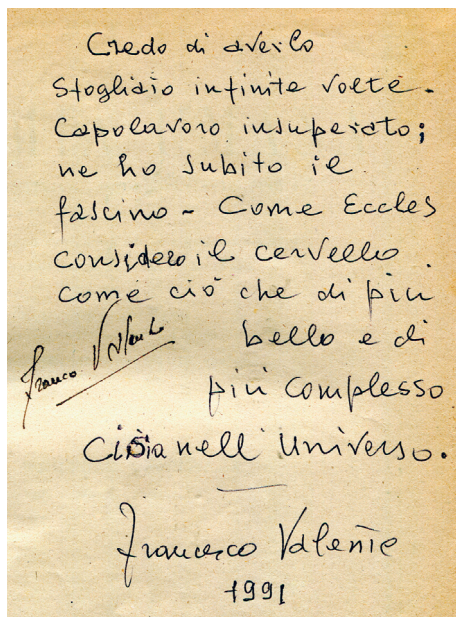 Credo di averlo
sfogliato infinite volte.
Capolavoro insuperato;
ne ho subito il
fascino - Come Eccles
considero il cervello
come ciò che di più
bello e di
Franco Valente
più complesso
ci sia nell'Universo.
Francesco Valente
1991